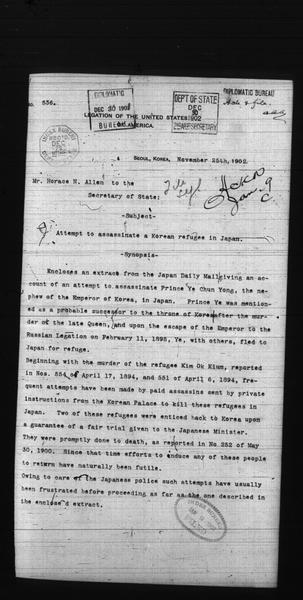 No. 536.
DIPLOMATIC
DEC 30 1902
BUREAU
DEP'T OF STATE
DEC
DIPLOMATIC BUREAU
Ack & file.
LEGATION OF THE UNITED STATES 1902
OF AMERICA.
INDEX BUREAU
DEC
SEOUL, KOREA, November 25th, 1902.
Mr. Horace N. Allen to the
Secretary of State;
Ack'd
Jan. 9
-Subject-
Attempt to assassinate a Korean refugee in Japan.
-Synopsis-
Encloses an extract from the Japan Daily Mail giving an ac-
count of an attempt to assassinate Prince Ye Chun Yong, the ne-
phew of the Emperor of Korea, in Japan. Prince Ye was mention-
ed as a probable successor to the throne of Korea after the mur-
der of the late Queen, and upon the escape of the Emperor to the
Russian Legation on February 11, 1895, Ye, with others, fled to
Japan for refuge.
Beginning with the murder of the refugee Kim Ok Kium, reported
in Nos. 554 of April 17, 1894, and 551 of April 6, 1894, fre-
quent attempts have been made by paid assassins sent by private
instructions from the Korean Palace to kill these refugees in
Japan. Two of these refugees were enticed back to Korea upon
a guarantee of a fair trial given to the Japanese Minister.
They were promptly done to death, as reported in No.252 of May
30, 1900. Since that time efforts to enduce any of these people
to return have naturally been futile.
Owing to care of the Japanese police such attempts have usually
been frustrated before proceeding as far as the one described in
the enclosed extract.
INDEX BUREAU